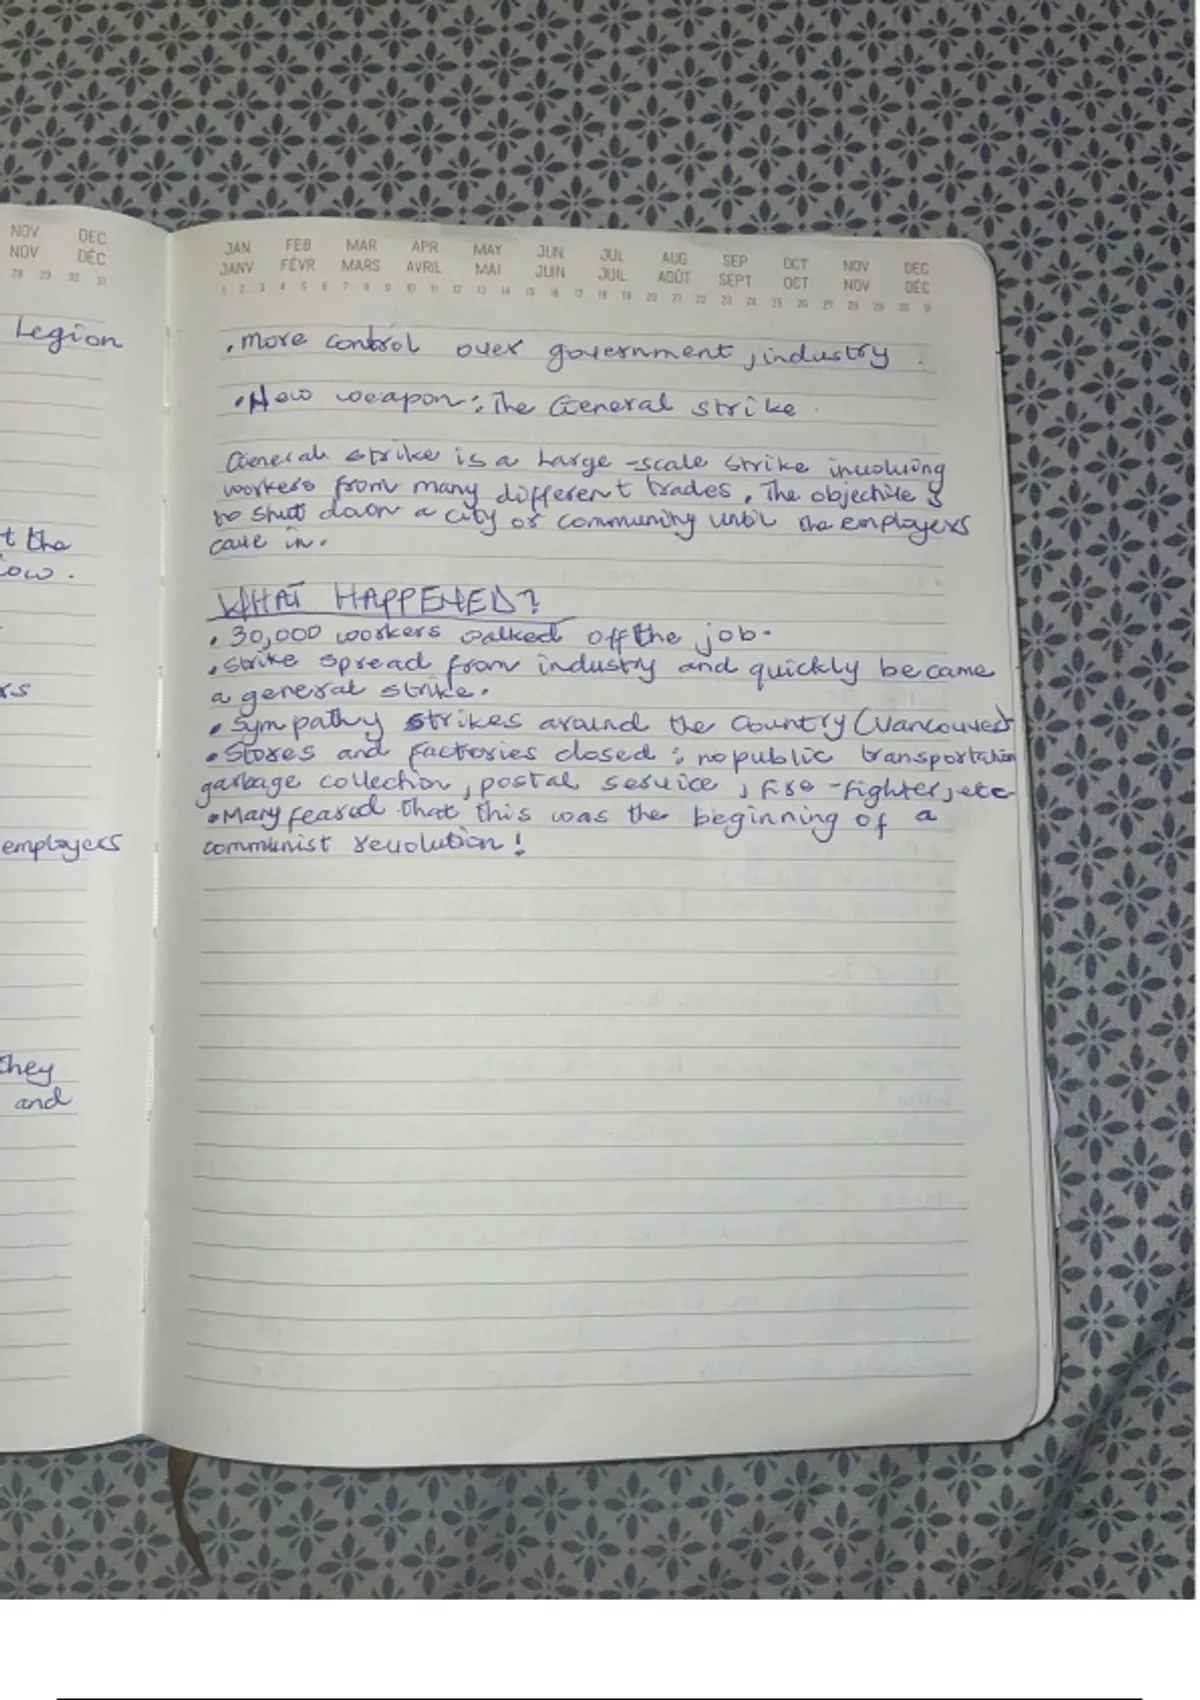 NOV DEC
NOV DÉC
28 29 30 31
Legion
t the
low.
rs
employers
they
and
JAN FEB MAR APR MAY JUN JUL AUG SEP OCT NOV DEC
JANV FÉVR MARS AVRIL MAI JUIN JUIL AOÛT SEPT OCT NOV DÉC
1 2 3 4 5 6 7 8 9 10 11 12 13 14 15 16 17 18 19 20 21 22 23 24 25 26 27 28 29 30 31
• More control over government, industry.
• New weapon: The General strike.
General strike is a Large-scale strike involving
workers from many different trades. The objective is
to shut down a city or community until the employers
cave in.
WHAT HAPPENED?
• 30,000 workers walked off the job.
• Strike spread from industry and quickly became
a general strike.
• Sympathy strikes around the Country (Vancouver)
• Stores and factories closed : no public transportation
garbage collection, postal service, fire-fighter, etc
• Many feared that this was the beginning of a
communist revolution!